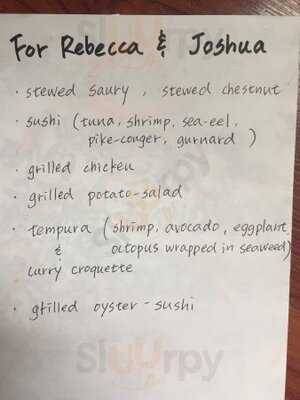 For Rebecca & Joshua
· stewed saury, stewed chestnut
· sushi (tuna, shrimp, sea-eel,
pike-conger, gurnard)
· grilled chicken
· grilled potato-salad
· tempura (shrimp, avocado, eggplant
& octopus wrapped in seaweed)
curry croquette
· grilled oyster-sushi
Sluurpy
Sluurpy
Sluurpy